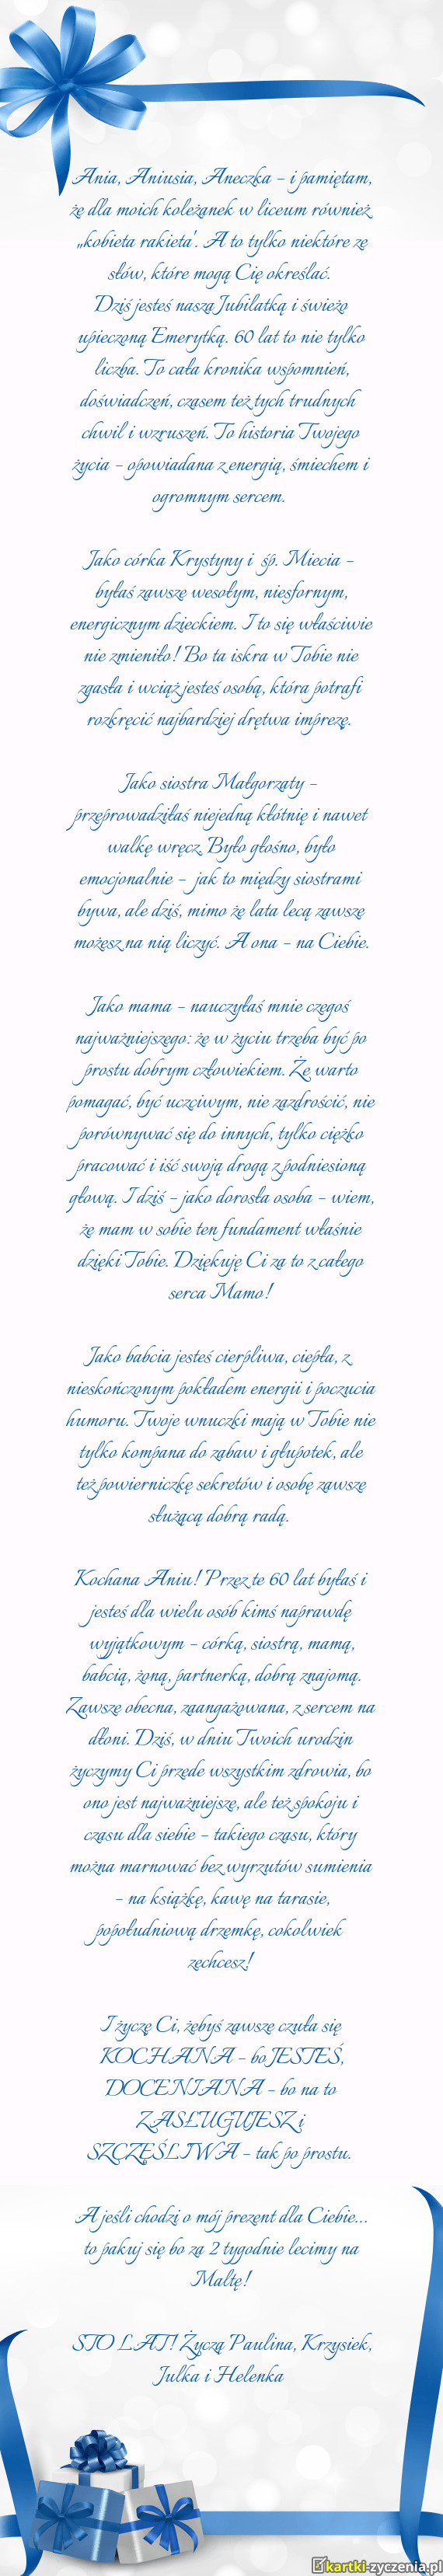 Ania, Aniusia, Aneczka – i pamiętam,
że dla moich koleżanek w liceum również
„kobieta rakieta'. A to tylko niektóre ze
słów, które mogą Cię określać.
Dziś jesteś naszą Jubilatką i świeżo
upieczoną Emerytką. 60 lat to nie tylko
liczba. To cała kronika wspomnień,
doświadczeń, czasem też tych trudnych
chwil i wzruszeń. To historia Twojego
życia – opowiadana z energią, śmiechem i
ogromnym sercem.

Jako córka Krystyny i śp. Miecia –
byłaś zawsze wesołym, niesfornym,
energicznym dzieckiem. I to się właściwie
nie zmieniło! Bo ta iskra w Tobie nie
zgasła i wciąż jesteś osobą, która potrafi
rozkręcić najbardziej drętwa imprezę.

Jako siostra Małgorzaty –
przeprowadziłaś niejedną kłótnię i nawet
walkę wręcz. Było głośno, było
emocjonalnie – jak to między siostrami
bywa, ale dziś, mimo że lata lecą zawsze
możesz na nią liczyć. A ona – na Ciebie.

Jako mama – nauczyłaś mnie czegoś
najważniejszego: że w życiu trzeba być po
prostu dobrym człowiekiem. Że warto
pomagać, być uczciwym, nie zazdrościć, nie
porównywać się do innych, tylko ciężko
pracować i iść swoją drogą z podniesioną
głową. I dziś – jako dorosła osoba – wiem,
że mam w sobie ten fundament właśnie
dzięki Tobie. Dziękuję Ci za to z całego
serca Mamo!

Jako babcia jesteś cierpliwa, ciepła, z
nieskończonym pokładem energii i poczucia
humoru. Twoje wnuczki mają w Tobie nie
tylko kompana do zabaw i głupotek, ale
też powierniczkę sekretów i osobę zawsze
służącą dobrą radą.

Kochana Aniu! Przez te 60 lat byłaś i
jesteś dla wielu osób kimś naprawdę
wyjątkowym – córką, siostrą, mamą,
babcią, żoną, partnerką, dobrą znajomą.
Zawsze obecna, zaangażowana, z sercem na
dłoni. Dziś, w dniu Twoich urodzin
życzymy Ci przede wszystkim zdrowia, bo
ono jest najważniejsze, ale też spokoju i
czasu dla siebie – takiego czasu, który
można marnować bez wyrzutów sumienia
– na książkę, kawę na tarasie,
popołudniową drzemkę, cokolwiek
zechcesz!

I życzę Ci, żebyś zawsze czuła się
KOCHANA – bo JESTEŚ,
DOCENIANA – bo na to
ZASŁUGUJESZ i
SZCZĘŚLIWA – tak po prostu.

A jeśli chodzi o mój prezent dla Ciebie...
to pakuj się bo za 2 tygodnie lecimy na
Maltę!

STO LAT! Życzą Paulina, Krzysiek,
Julka i Helenka
kartki-zyczenia.pl